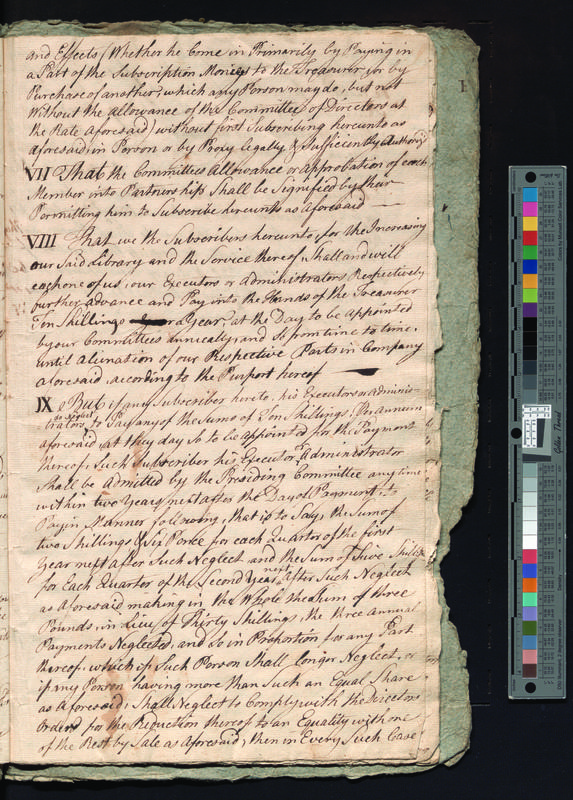 and Effects (Whether he Come in Primarily by Paying in
a Part of the Subscription Monies to the Treasurer, or by
Purchase of another, which any Person may do, but not
Without the allowance of the Committee of Directors at
the Rate aforesaid) without first Subscribing hereunto as
aforesaid, in Person or by Proxy legally & Sufficiently Authoriz'd
VII That the Committees Allowance or Approbation of each
Member into Partnership Shall be Signified by their
Permitting him to Subscribe hereunto as aforesaid
VIII That we the Subscribers hereunto, for the Increasing
our Said Library and the Service thereof, Shall and will
each one of us, our Executors or Administrators Respectively
further advance and Pay into the Hands of the Treasurer
Ten Shillings a Year, at the Day to be appointed
by our Committees annually, and So from time to time,
until alienation of our Respective Parts in Company
aforesaid, according to the Purport hereof
IX But if any Subscriber hereto, his Executors or Adminis-
trators, do neglect to Pay any of the Sums of Ten Shillings, Per Annum
aforesaid, at they day So to be appointed for the Payment
thereof, Such Subscriber his Executor or Administrator
Shall be admitted by the Presiding Committee any time
within two Years next after the Day of Payment, to
Pay in Manner following, that is to Say, the Sum of
two Shillings & Six Pence for each Quarter of the first
Year next After Such Neglect and the Sum of Five Shillings
for Each Quarter of the Second Year next After Such Neglect
as Aforesaid making in the Whole the Sum of three
Pounds, in Lieu of Thirty Shillings, the three Annual
Payments Neglected, and so in Proportion for any Part
thereof, which if Such Person Shall longer Neglect, or
if any Person having more than Such an Equal Share
as Aforesaid, Shall Neglect to Comply with the Directors
Orders for the Reduction thereof to an Equality with one
of the Rest by Sale as Aforesaid, then in Every Such Case